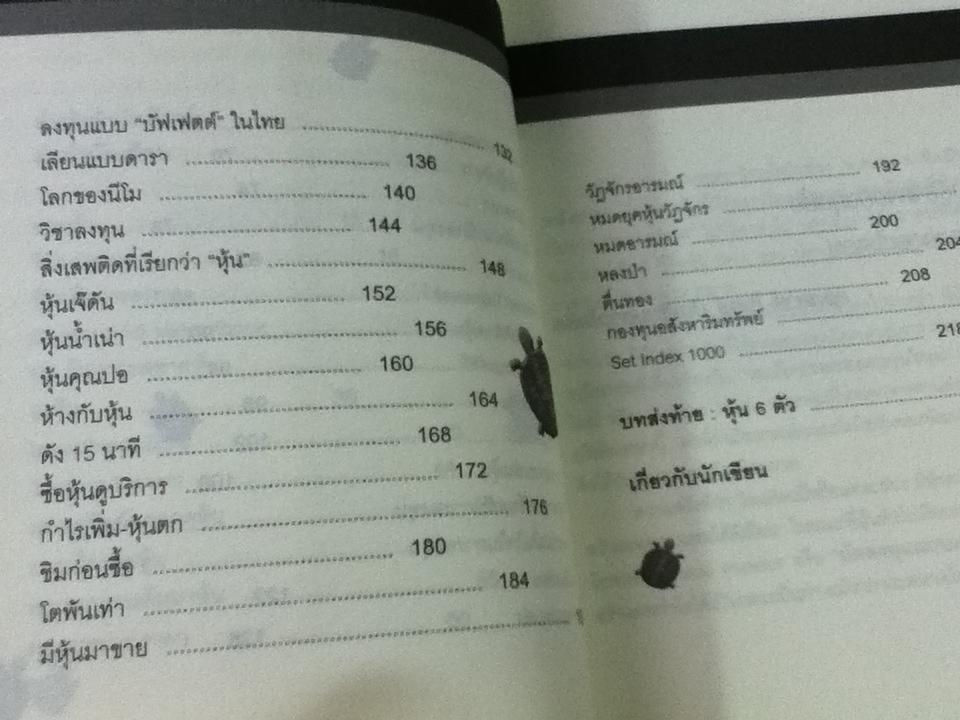 ลงทุนแบบ "บัฟเฟตต์" ในไทย ........ 132
เลียนแบบดารา ........ 136
โลกของนีโม ........ 140
วิชาลงทุน ........ 144
สิ่งเสพติดที่เรียกว่า "หุ้น" ........ 148
หุ้นเจ๊ดัน ........ 152
หุ้นน้ำเน่า ........ 156
หุ้นคุณปอ ........ 160
ห้างกับหุ้น ........ 164
ดัง 15 นาที ........ 168
ซื้อหุ้นดูบริการ ........ 172
กำไรเพิ่ม-หุ้นตก ........ 176
ชิมก่อนซื้อ ........ 180
โตพันเท่า ........ 184
มีหุ้นมาขาย ........
วัฏจักรอารมณ์ ........ 192
หมดยุคหุ้นวัฏจักร ........
หมดอารมณ์ ........ 200
หลงป่า ........ 204
ตื่นทอง ........ 208
กองทุนอสังหาริมทรัพย์ ........
Set Index 1000 ........ 218
บทส่งท้าย : หุ้น 6 ตัว ........
เกี่ยวกับนักเขียน